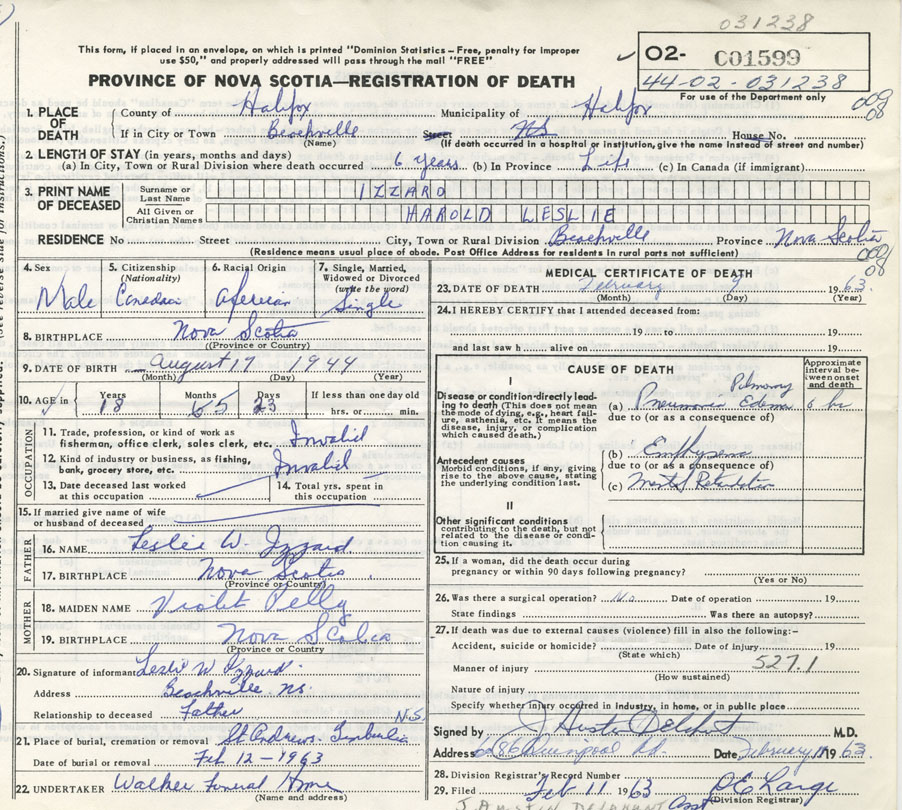 031238
This form, if placed in an envelope, on which is printed "Dominion Statistics — Free, penalty for improper
use $50," and properly addressed will pass through the mail "FREE"
O2- C01599
44-02-031238
For use of the Department only
PROVINCE OF NOVA SCOTIA—REGISTRATION OF DEATH
1. PLACE OF DEATH
County of Halifax Municipality of Halifax
If in City or Town Beechville Street NS House No.
(Name) (If death occurred in a hospital or institution, give the name instead of street and number)
2. LENGTH OF STAY (in years, months and days)
(a) In City, Town or Rural Division where death occurred 6 years (b) In Province Life (c) In Canada (if immigrant)
3. PRINT NAME OF DECEASED
Surname or Last Name IZZARD
All Given or Christian Names HAROLD LESLIE
RESIDENCE No Street City, Town or Rural Division Beechville Province Nova Scotia
(Residence means usual place of abode. Post Office Address for residents in rural parts not sufficient)
4. Sex Male
5. Citizenship (Nationality) Canadian
6. Racial Origin
7. Single, Married, Widowed or Divorced (write the word) Single
8. BIRTHPLACE Nova Scotia
(Province or Country)
9. DATE OF BIRTH August 17 1944
(Month) (Day) (Year)
10. AGE in Years 18 Months 5 Days 23 If less than one day old
hrs. or min.
OCCUPATION
11. Trade, profession, or kind of work as
fisherman, office clerk, sales clerk, etc. Invalid
12. Kind of industry or business, as fishing,
bank, grocery store, etc. Invalid
13. Date deceased last worked
at this occupation
14. Total yrs. spent in
this occupation
15. If married give name of wife
or husband of deceased
FATHER
16. NAME Leslie W. Izzard
17. BIRTHPLACE Nova Scotia
(Province or Country)
MOTHER
18. MAIDEN NAME Violet Pelly
19. BIRTHPLACE Nova Scotia
(Province or Country)
20. Signature of informant Leslie W Izzard
Address Beechville NS.
Relationship to deceased Father
21. Place of burial, cremation or removal St Andrews Timberlea N.S.
Date of burial or removal Feb 12-1963
22. UNDERTAKER Walker Funeral Home
(Name and address)
MEDICAL CERTIFICATE OF DEATH
23. DATE OF DEATH February 9 1963
(Month) (Day) (Year)
24. I HEREBY CERTIFY that I attended deceased from:
19 to 19
and last saw h alive on 19
CAUSE OF DEATH
Approximate interval between onset and death
I
Disease or condition directly leading to death (This does not mean
the mode of dying, e.g., heart failure, asthenia, etc. It means the
disease, injury, or complication
which caused death.)
(a) Pneumonia Pulmonary Edema hr
due to (or as a consequence of)
Antecedent causes
Morbid conditions, if any, giving
rise to the above cause, stating
the underlying condition last.
(b) Emphysema
due to (or as a consequence of)
(c) Mental Retardation
II
Other significant conditions
contributing to the death, but not
related to the disease or condition causing it.
25. If a woman, did the death occur during
pregnancy or within 90 days following pregnancy?
(Yes or No)
26. Was there a surgical operation? No Date of operation 19
State findings Was there an autopsy?
27. If death was due to external causes (violence) fill in also the following:-
Accident, suicide or homicide? Date of injury 19
(State which)
Manner of injury 527.1
(How sustained)
Nature of injury
Specify whether injury occurred in industry, in home, or in public place
Signed by M.D.
Address Date February 1963
28. Division Registrar's Record Number
29. Filed Feb 11 1963
(Division Registrar)